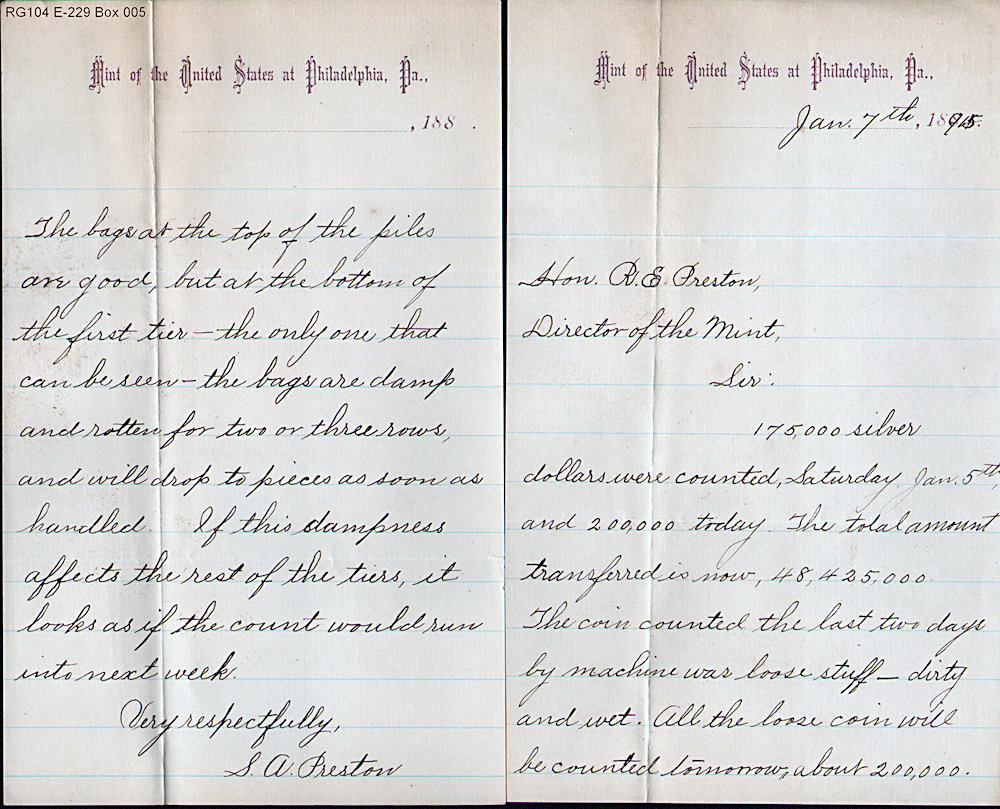 RG104 E-229 Box 005
Mint of the United States at Philadelphia, Pa.,
Jan. 7th, 1895.
Hon. R. E. Preston,
Director of the Mint,
Sir:
175,000 silver
dollars were counted, Saturday Jan. 5th,
and 200,000 today. The total amount
transferred is now, 48,425,000.
The coin counted the last two days
by machine was loose stuff — dirty
and wet. All the loose coin will
be counted tomorrow, about 200,000.
Mint of the United States at Philadelphia, Pa.,
, 188 .
The bags at the top of the piles
are good, but at the bottom of
the first tier — the only one that
can be seen — the bags are damp
and rotten for two or three rows,
and will drop to pieces as soon as
handled. If this dampness
affects the rest of the tiers, it
looks as if the count would run
into next week.
Very respectfully,
S. A. Preston